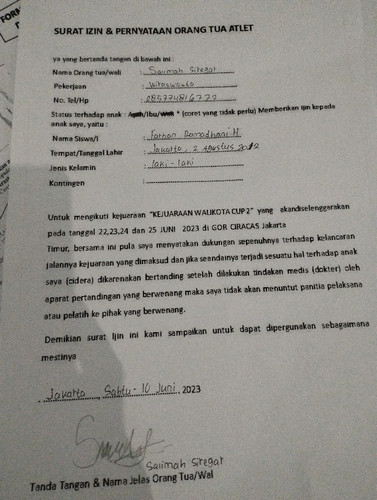 SURAT IZIN & PERNYATAAN ORANG TUA ATLET
ya yang bertanda tangan di bawah ini :
Nama Orang tua/wali : Saiimah Siregar
Pekerjaan : Wiraswasta
No. Tel/Hp : 085774816777
Status terhadap anak : Ayah/Ibu/Wali * (coret yang tidak perlu) Memberikan ijin kepada
anak saya, yaitu :
Nama Siswa/i : Fathan Ramadhani H
Tempat/Tanggal Lahir : Jakarta, 2 Agustus 2012
Jenis Kelamin : laki - laki
Kontingen :
Untuk mengikuti kejuaraan "KEJUARAAN WALIKOTA CUP 2" yang akandiselenggarakan
pada tanggal 22,23,24 dan 25 JUNI 2023 di GOR CIRACAS Jakarta
Timur, bersama ini pula saya menyatakan dukungan sepenuhnya terhadap kelancaran
jalannya kejuaraan yang dimaksud dan jika seandainya terjadi sesuatu hal terhadap anak
saya (cidera) dikarenakan bertanding setelah dilakukan tindakan medis (dokter) oleh
aparat pertandingan yang berwenang maka saya tidak akan menuntut panitia pelaksana
atau pelatih ke pihak yang berwenang.
Demikian surat Ijin ini kami sampaikan untuk dapat dipergunakan sebagaimana
mestinya
Jakarta, Sabtu - 10 Juni 2023
Saiimah Siregar
Tanda Tangan & Nama Jelas Orang Tua/Wal